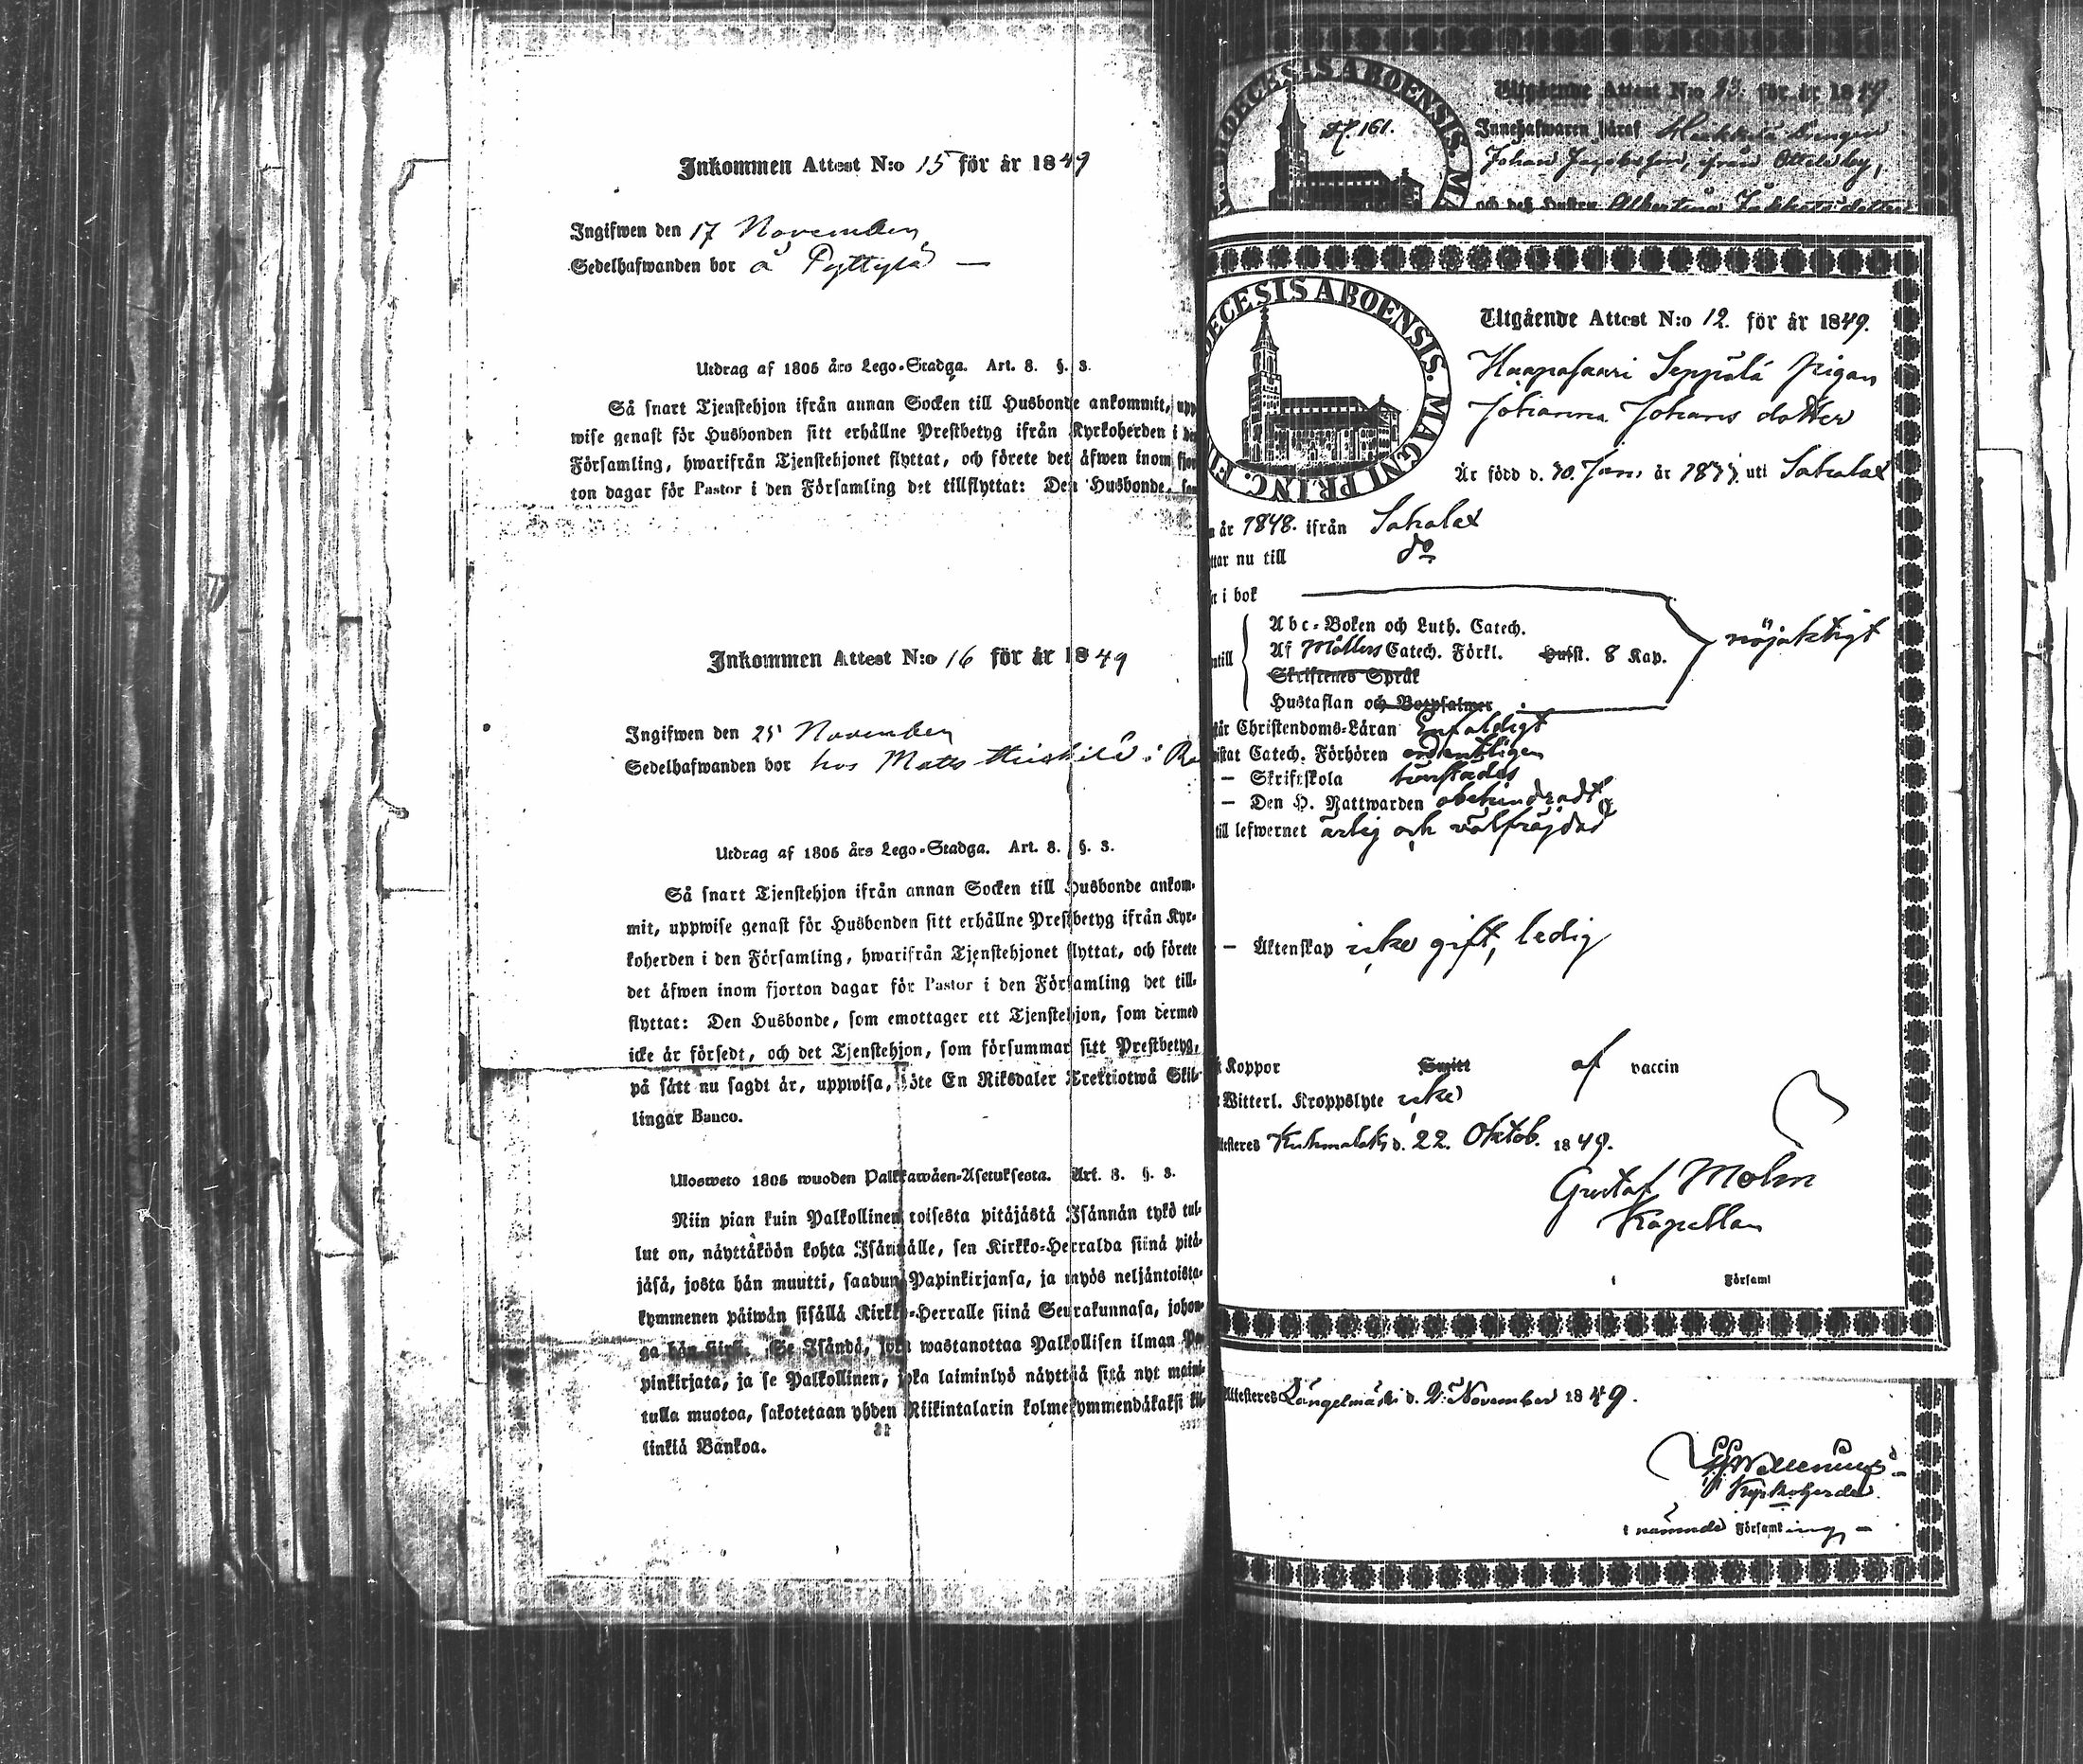 Inkommen Attest N:o 15 för år 1849
Ingifwen den 17 November
Sedelhafwanden bor å Pyttylä —
Utdrag af 1805 års Lego-Stadga. Art. 8. §. 3.
Så snart Tjenstehjon ifrån annan Socken till Husbonde ankommit, upp
wise genast för Husbonden sitt erhållne Prestbetyg ifrån Kyrkoherden i den
Församling, hwarifrån Tjenstehjonet flyttat, och förete det äfwen inom fjor
ton dagar för Pastor i den Församling det tillflyttat: Den Husbonde, som
Inkommen Attest N:o 16 för år 1849
Ingifwen den 25 November
Sedelhafwanden bor hos Matts
Utdrag af 1805 års Lego-Stadga. Art. 8. §. 3.
Så snart Tjenstehjon ifrån annan Socken till Husbonde ankom-
mit, uppwise genast för Husbonden sitt erhållne Prestbetyg ifrån Kyr-
koherden i den Församling, hwarifrån Tjenstehjonet flyttat, och förete
det äfwen inom fjorton dagar för Pastor i den Församling det till-
flyttat: Den Husbonde, som emottager ett Tjenstehjon, som dermed
icke är försedt, och det Tjenstehjon, som försummar sitt Prestbetyg,
på sätt nu sagdt är, uppwisa, böte En Riksdaler Trettiotwå Skil-
lingar Banco.
Ulosweto 1805 wuoden Palkkawäen-Asetuksesta. Art. 8. §. 3.
Niin pian kuin Palkollinen toisesta pitäjästä Isännän tykö tul-
lut on, näyttäköön kohta Isännälle, sen Kirkko-Herralda siinä pitä-
jäsä, josta hän muutti, saadun Papinkirjansa, ja myös neljäntoista-
kymmenen päiwän sisällä Kirkko-Herralle siinä Seurakunnasa, johon-
ga hän siirsi. Se Isändä, joka wastanottaa Palkollisen ilman Pa-
pinkirjata, ja se Palkollinen, joka laiminlyö näyttää sitä nyt maini-
tulla muotoa, sakotetaan yhden Riikintalarin kolmekymmendäkaksi kil-
linkiä Bankoa.
DIOECESIS ABOENSIS. M
161.
Utgående Attest N:o 23. för år 1849.
Innehafwaren häraf Drengen
Johan Jacobsson, ifrån
och deß Hustru Albertina
DECESIS ABOENSIS. MAGNI PRINC. F
Utgående Attest N:o 12. för år 1849.
Haapasaari Seppälä Pigan
Johanna Johans dotter
Är född d. 10. Jan. år uti Sahalax
år 1848. ifrån Sahalax
ttar nu till do
i bok
Abc-Boken och Luth. Catech.
ntill Af Möllers Catech. Förkl. Husst. 8 Kap. nöjaktigt
Skriftenes Språk
Hustaflan och Botpsalmer
står Christendoms-Läran Enfaldigt
istat Catech. Förhören ordentligen
— Skriftskola
— Den H. Nattwarden obehindradt
till lefwernet ärlig och välfräjdad
— Äktenskap icke gift, ledig
Koppor Smitt af vaccin
Witterl. Kroppslyte icke
ttesteres Kuhmalaks d. 22. Oktob. 1849.
Gustaf Molin
Kapellan
i Församl
Attesteres Längelmäki d. 2. November 1849.
Kyrkoherde
i nämnde Församling —